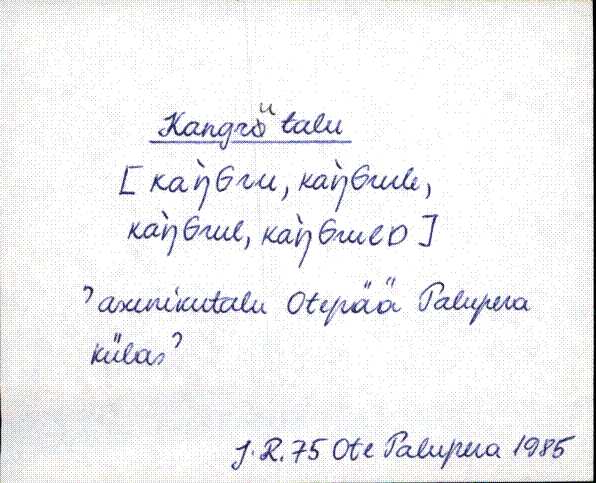 Kangru talu
[kaŋ̀Gru, kaŋ̀Grule,
kaŋ̀Grul, kaŋ̀GruleD]
’asunikutalu Otepää Palupera
külas’
J. R. 75 Ote Palupera 1985